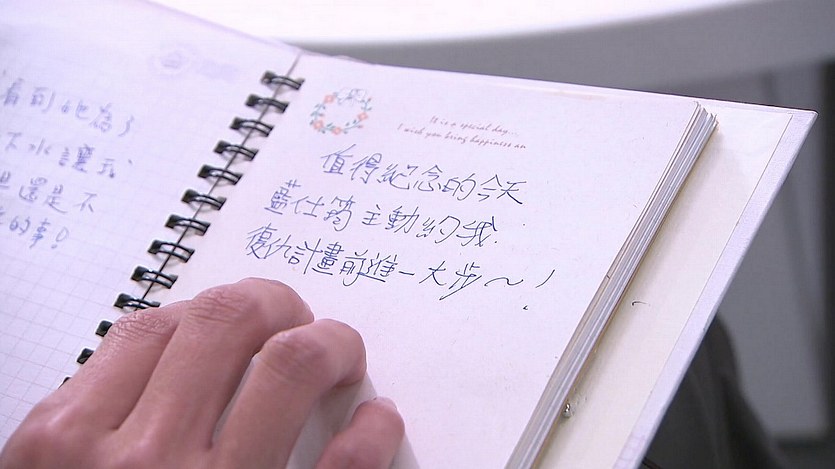 看到他為了
下水讓我
但還是不
的事!
It is a special day...
I wish you being happiness an
值得紀念的今天
藍仕筠主動約我.
復仇計畫前進一大步~!